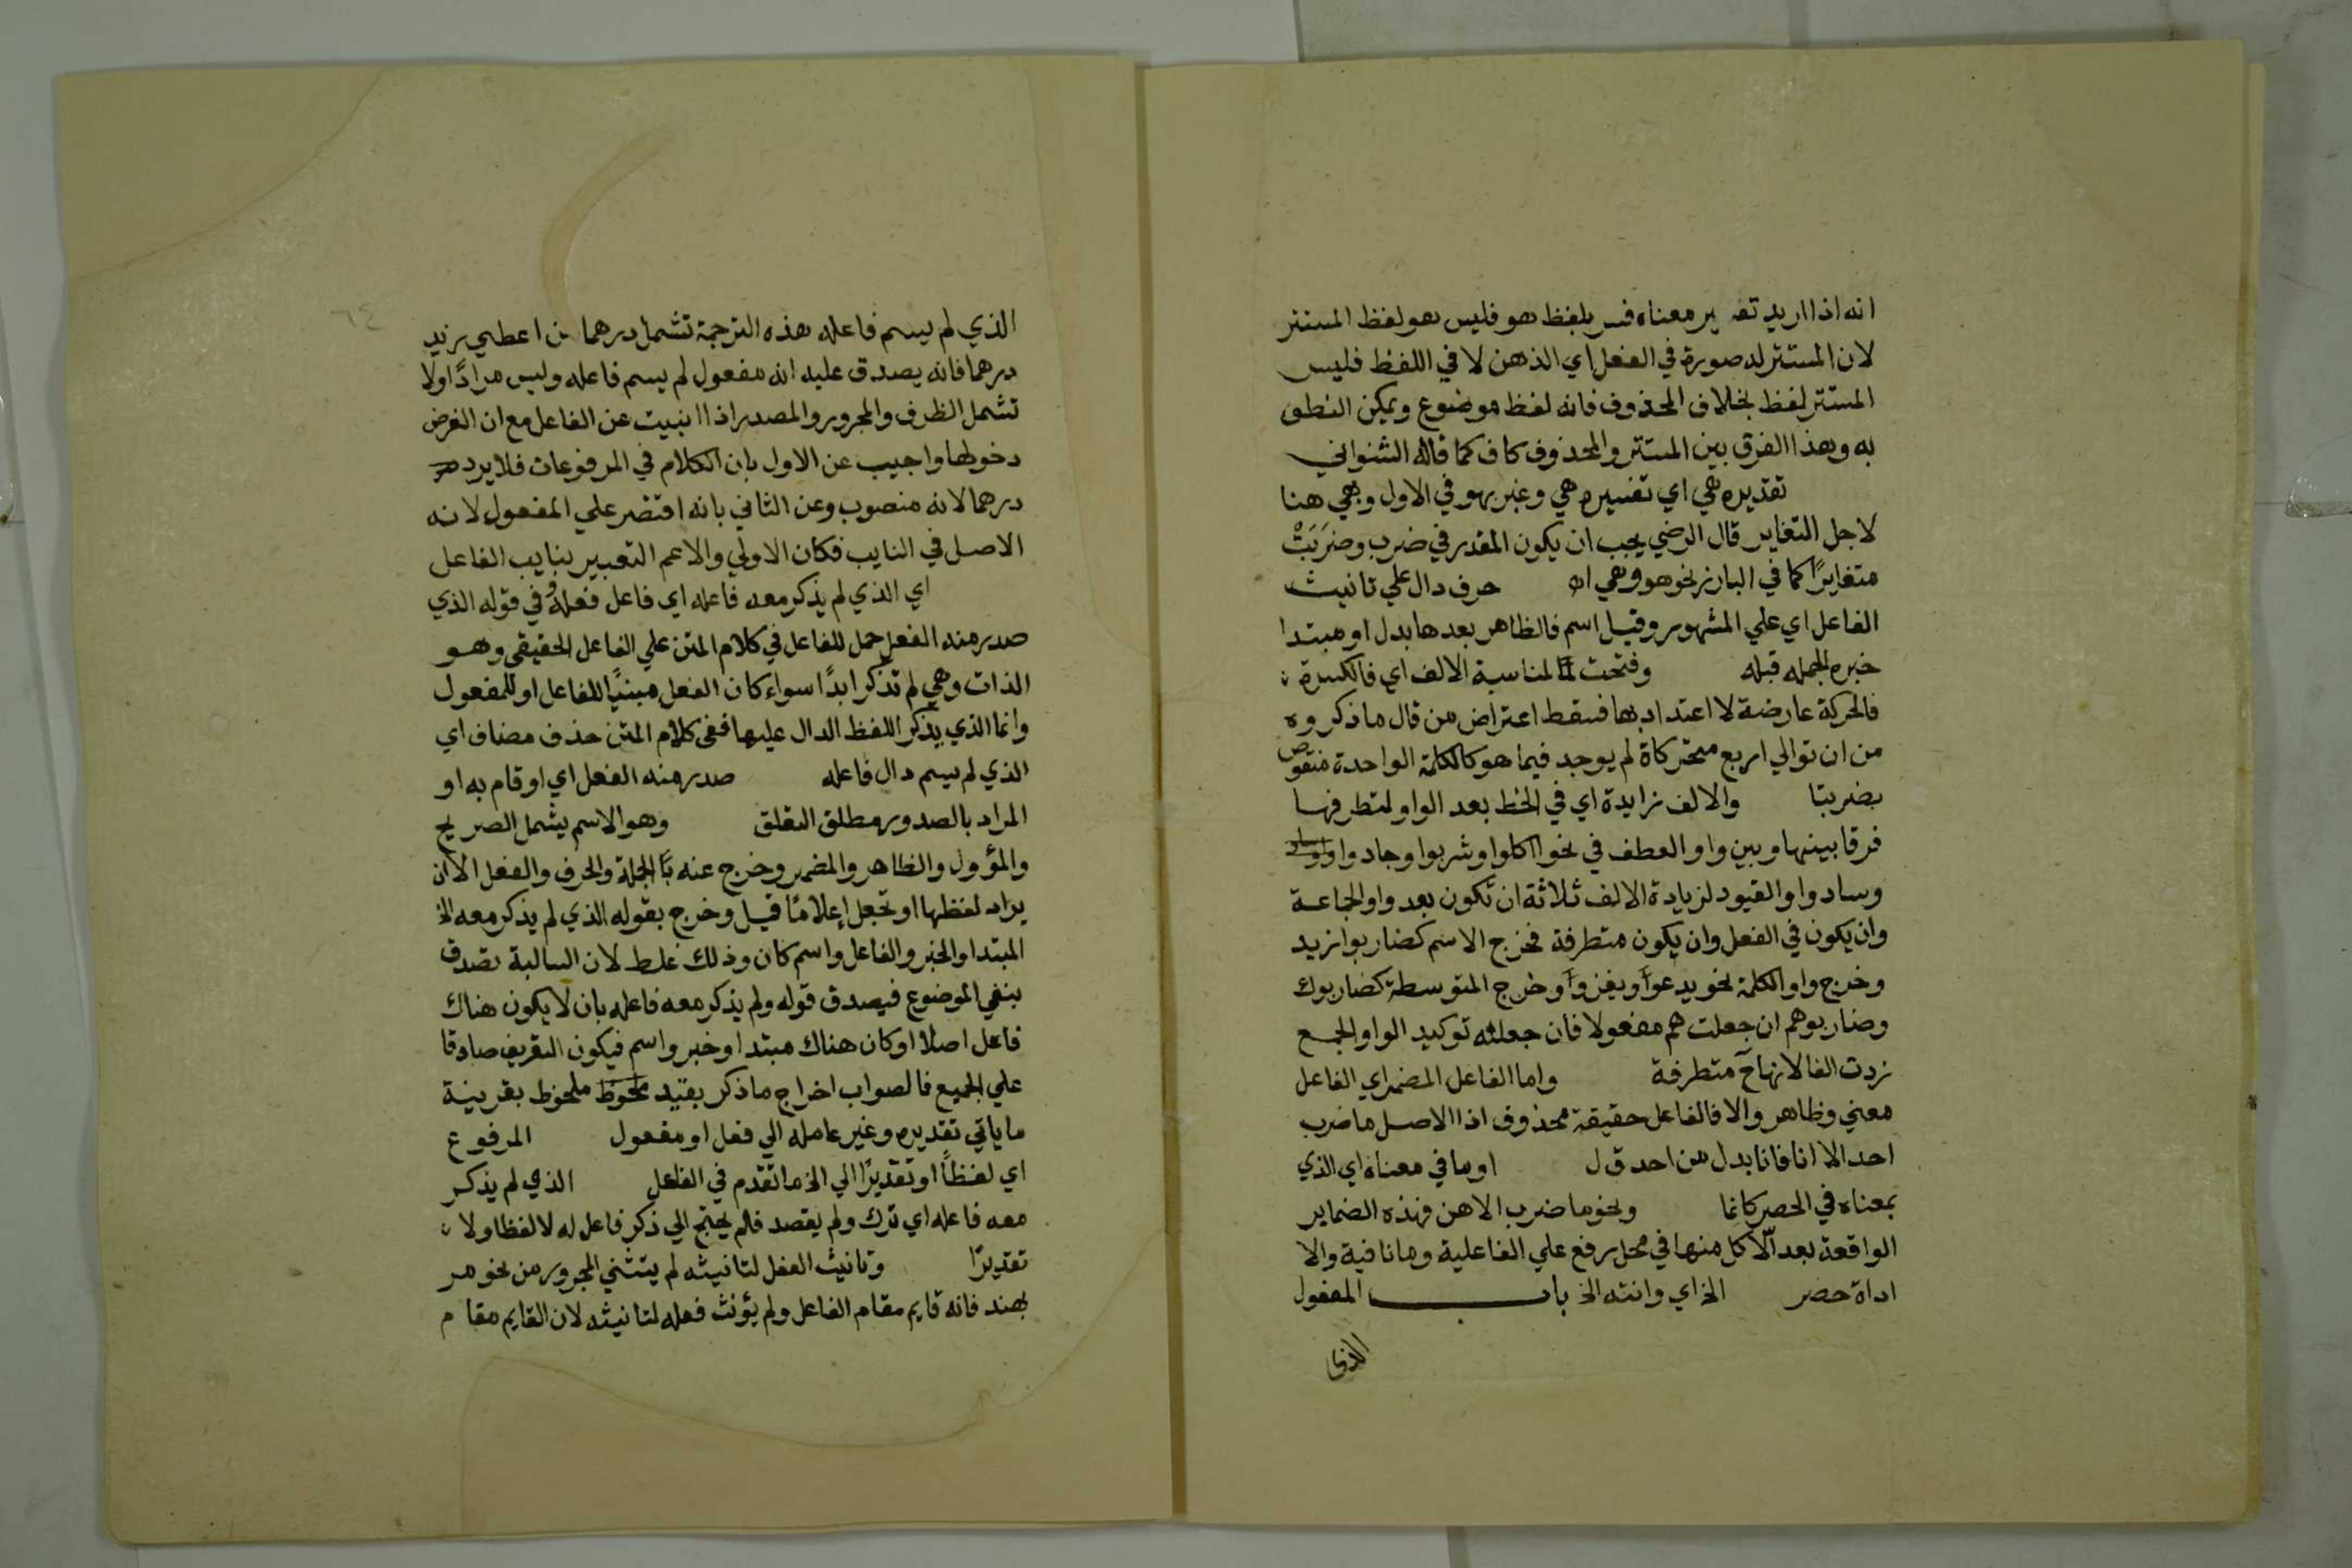 انه اذا اريد تفسير معناه فسر بلفظ هو فليس هو لفظ المستتر
لان المستتر له صورة في الفعل اي الذهن لا في اللفظ فليس
المستتر لفظ بخلاف المحذوف فانه لفظ موضوع ويمكن النطق
به وهذا الفرق بين المستتر والمحذوف كاف كما قاله الشنواني
تقديره هي اي تفسيره هي وعبر بهو في الاول وبهي هنا
لاجل التغاير قال الرضي يجب ان يكون المقدر في ضرب وضَرَبَتْ
متغايرًا كما في البارز نحو هو وهي اه حرف دال علي تانيث
الفاعل اي علي المشهور وقيل اسم فالظاهر بعدها بدل او مبتدا
خبره الجمله قبله وفتحت لمناسبة الالف اي فالكسرة
فالحركة عارضة لا اعتداد بها فسقط اعتراض من قال ما ذكروه
من ان توالي اربع متحركاة لم يوجد فيما هو كالكلمة الواحدة منقوص
بضربتا والالف زايدة اي في الخط بعد الواو لتطرفها
فرقا بينها وبين واو العطف في نحو اكلوا وشربوا وجادوا
وسادوا والقيود لزيادة الالف ثلاثة ان تكون بعد واو الجماعة
وان يكون في الفعل وان يكون متطرفة فخرج الاسم كضاربوا زيد
وخرج واو الكلمة نحو يدعوا ويغزوا وخرج المتوسطة كضاربوك
وضاربوهم ان جعلت هم مفعولا فان جعلته توكيد الواو الجمع
زدت الفا لانها ح متطرفة واما الفاعل المضمر اي الفاعل
معني وظاهر والا فالفاعل حقيقة محذوف اذ الاصل ما ضرب
احد الا انا فانا بدل من احد ق ل او ما في معناه اي الذي
بمعناه في الحصر كانما ونحو ما ضرب الا هن فهذه الضماير
الواقعة بعد الّا كل منها في محل رفع علي الفاعلية وما نافية والا
اداة حصر الخ اي وانته الخ باب المفعول
الذي
٦٤
الذي لم يسم فاعله هذه الترجمة تشمل درهما من اعطي زيد
درهما فانه يصدق عليه انه مفعول لم يسم فاعله وليس مرادًا ولا
تشمل الظرف والمجرور والمصدر اذا انيبت عن الفاعل مع ان الغرض
دخولها واجيب عن الاول بان الكلام في المرفوعات فلا يرد
درهما لانه منصوب وعن الثاني بانه اقتصر علي المفعول لانه
الاصل في النايب فكان الاولي والاعم التعبير بنايب الفاعل
اي الذي لم يذكر معه فاعله اي فاعل فعله وفي قوله الذي
صدر منه الفعل حمل للفاعل في كلام المتن علي الفاعل الحقيقي وهو
الذات وهي لم تذكر ابدًا سواء كان الفعل مبنيًا للفاعل او للمفعول
وانما الذي يذكر اللفظ الدال عليها ففي كلام المتن حذف مضاف اي
الذي لم يسم دال فاعله صدر منه الفعل اي او قام به او
المراد بالصدور مطلق التعلق وهو الاسم يشمل الصريح
والمؤول والظاهر والمضمر وخرج عنه الجملة والحرف والفعل الا ان
يراد لفظها او تجعل إعلامًا قيل وخرج بقوله الذي لم يذكر معه الخ
المبتدا والخبر والفاعل واسم كان وذلك غلط لان السالبة تصدق
بنفي الموضوع فيصدق قوله ولم يذكر معه فاعله بان لا يكون هناك
فاعل اصلا او كان هناك مبتدا وخبر واسم فيكون التعريف صادقا
علي الجميع فالصواب اخراج ما ذكر بقيد ملحوظ بقرينة
ما ياتي تقديره وغير عامله الي فعل او مفعول المرفوع
اي لفظاً او تقديرًا الي اخر ما تقدم في الفاعل الذي لم يذكر
معه فاعله اي ترك ولم يقصد فلم يحتج الي ذكر فاعل له لا لفظا ولا
تقديرًا وتانيث الفعل لتانيثه لم يتثني المجرور من نحو مر
بهند فانه قايم مقام الفاعل ولم يؤنث فعله لتانيثه لان القايم مقام